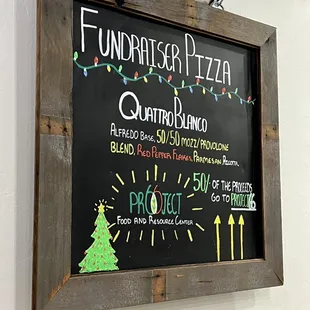 FUNDRAISER PIZZA
QUATTRO BLANCO
ALFREDO BASE, 50/50 MOZZ/PROVOLONE
BLEND, RED PEPPER FLAKES, PARMESAN, RICOTTA,
50% OF THE PROCEEDS
GO TO PROJECT66
PR66JECT
FOOD AND RESOURCE CENTER